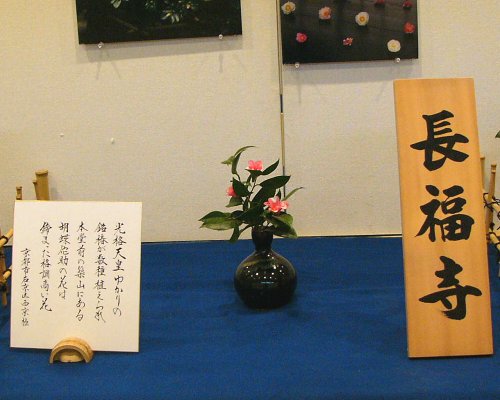 長福寺
光格天皇ゆかりの
銘椿が数種植えられ
本堂前の築山にある
胡蝶侘助の花は
静まった格調高い花
京都市右京区西京極